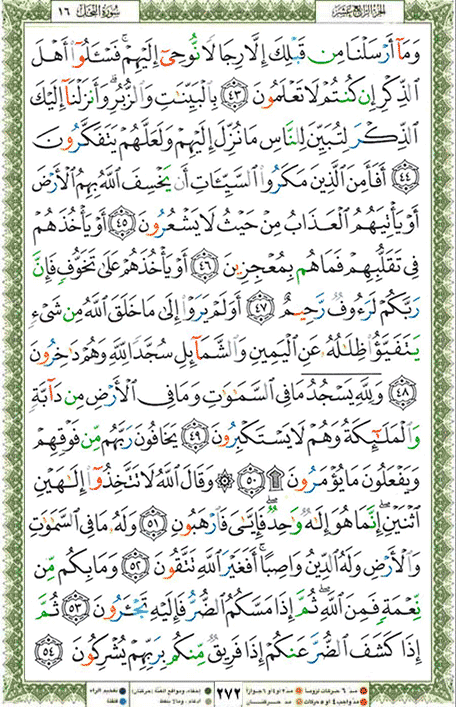 الجزء الرابع عشر سورة النحل ١٦
وَمَآ أَرۡسَلۡنَا مِن قَبۡلِكَ إِلَّا رِجَالٗا نُّوحِيٓ إِلَيۡهِمۡۖ فَسۡـَٔلُوٓاْ أَهۡلَ
ٱلذِّكۡرِ إِن كُنتُمۡ لَا تَعۡلَمُونَ ٤٣ بِٱلۡبَيِّنَٰتِ وَٱلزُّبُرِۗ وَأَنزَلۡنَآ إِلَيۡكَ
ٱلذِّكۡرَ لِتُبَيِّنَ لِلنَّاسِ مَا نُزِّلَ إِلَيۡهِمۡ وَلَعَلَّهُمۡ يَتَفَكَّرُونَ
٤٤ أَفَأَمِنَ ٱلَّذِينَ مَكَرُواْ ٱلسَّيِّـَٔاتِ أَن يَخۡسِفَ ٱللَّهُ بِهِمُ ٱلۡأَرۡضَ
أَوۡ يَأۡتِيَهُمُ ٱلۡعَذَابُ مِنۡ حَيۡثُ لَا يَشۡعُرُونَ ٤٥ أَوۡ يَأۡخُذَهُمۡ
فِي تَقَلُّبِهِمۡ فَمَا هُم بِمُعۡجِزِينَ ٤٦ أَوۡ يَأۡخُذَهُمۡ عَلَىٰ تَخَوُّفٖ فَإِنَّ
رَبَّكُمۡ لَرَءُوفٞ رَّحِيمٌ ٤٧ أَوَلَمۡ يَرَوۡاْ إِلَىٰ مَا خَلَقَ ٱللَّهُ مِن شَيۡءٖ
يَتَفَيَّؤُاْ ظِلَٰلُهُۥ عَنِ ٱلۡيَمِينِ وَٱلشَّمَآئِلِ سُجَّدٗا لِّلَّهِ وَهُمۡ دَٰخِرُونَ
٤٨ وَلِلَّهِۤ يَسۡجُدُۤ مَا فِي ٱلسَّمَٰوَٰتِ وَمَا فِي ٱلۡأَرۡضِ مِن دَآبَّةٖ
وَٱلۡمَلَٰٓئِكَةُ وَهُمۡ لَا يَسۡتَكۡبِرُونَ ٤٩ يَخَافُونَ رَبَّهُم مِّن فَوۡقِهِمۡ
وَيَفۡعَلُونَ مَا يُؤۡمَرُونَ ۩ ٥٠ ۞ وَقَالَ ٱللَّهُ لَا تَتَّخِذُوٓاْ إِلَٰهَيۡنِ
ٱثۡنَيۡنِۖ إِنَّمَا هُوَ إِلَٰهٞ وَٰحِدٞ فَإِيَّٰيَ فَٱرۡهَبُونِ ٥١ وَلَهُۥ مَا فِي ٱلسَّمَٰوَٰتِ
وَٱلۡأَرۡضِ وَلَهُ ٱلدِّينُ وَاصِبًاۚ أَفَغَيۡرَ ٱللَّهِ تَتَّقُونَ ٥٢ وَمَا بِكُم مِّن
نِّعۡمَةٖ فَمِنَ ٱللَّهِۖ ثُمَّ إِذَا مَسَّكُمُ ٱلضُّرُّ فَإِلَيۡهِ تَجۡـَٔرُونَ ٥٣ ثُمَّ
إِذَا كَشَفَ ٱلضُّرَّ عَنكُمۡ إِذَا فَرِيقٞ مِّنكُم بِرَبِّهِمۡ يُشۡرِكُونَ ٥٤
مد ٦ حركات لزوماً مد ٢ او ٤ او ٦ جوازاً ٢٧٢ إخفاء، ومواقع الغنّة (حركتان) تفخيم الراء
مد واجب ٤ او ٥ حركات مد حركتان ادغام، وما لا يلفظ قلقلة